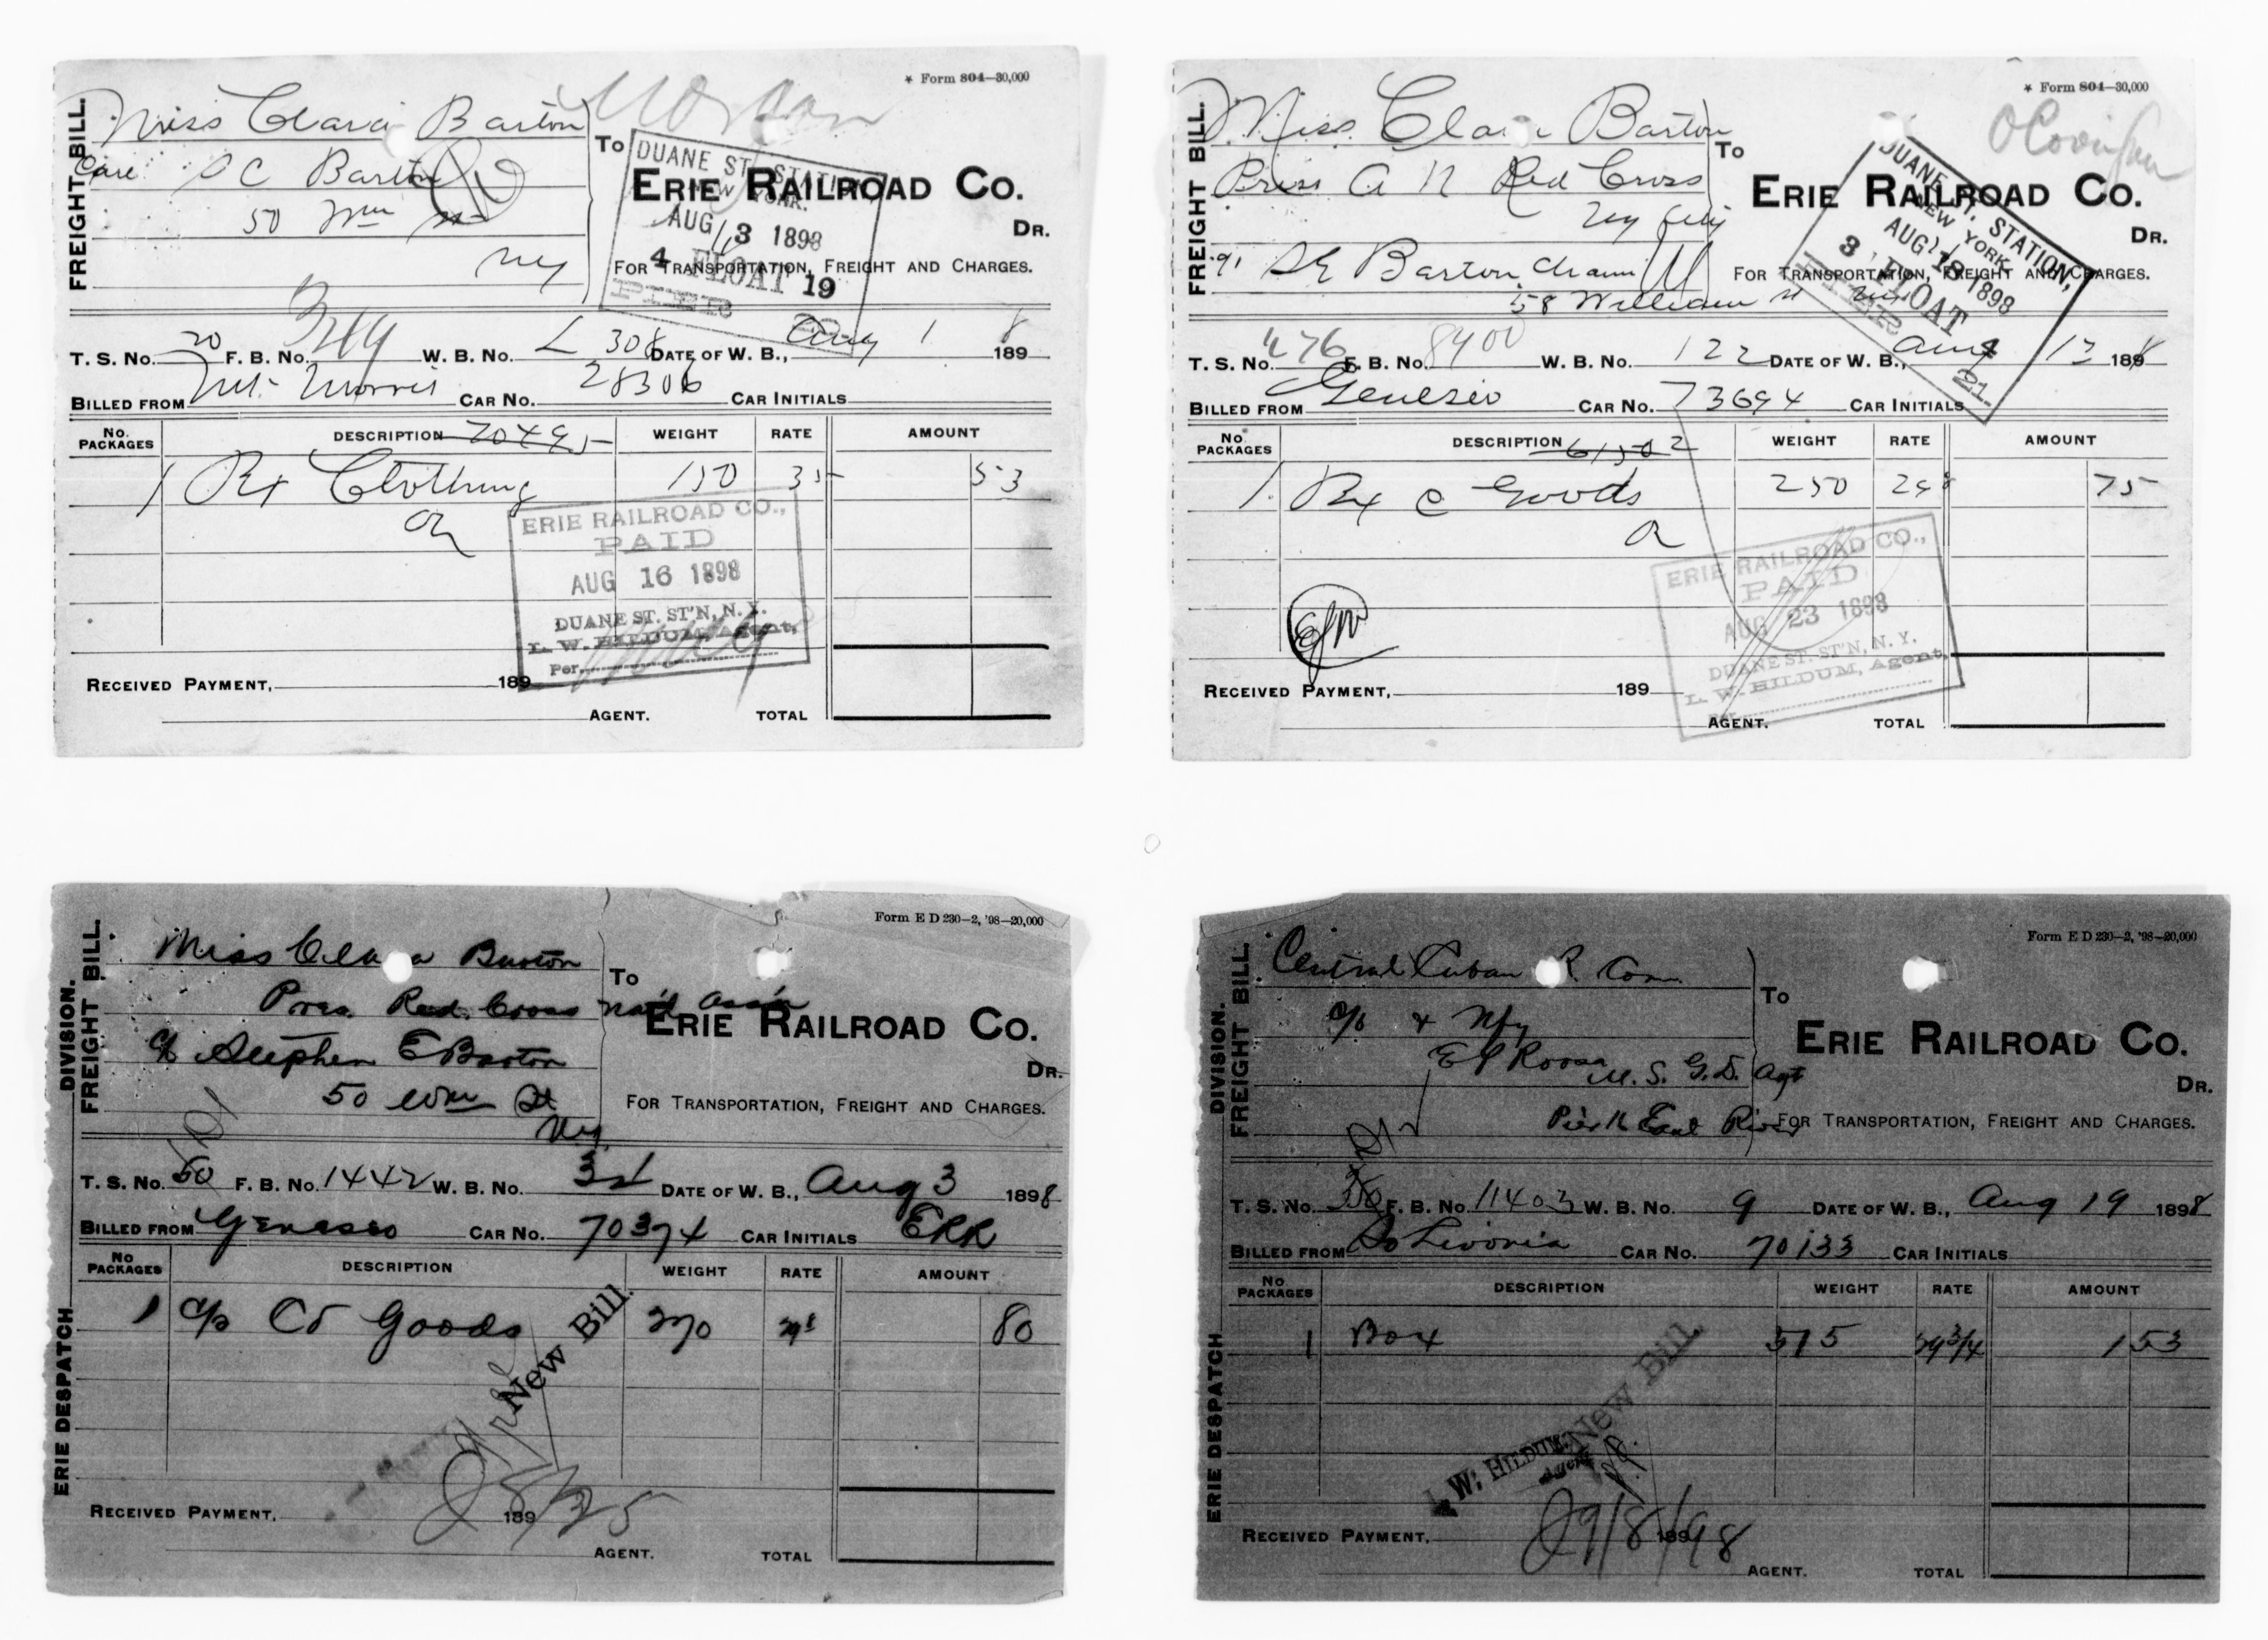 FREIGHT BILL.
* Form 804—30,000
Miss Clara Barton
Care S C Barton
50 Wm St
NY
To
ERIE RAILROAD CO.
DR.
FOR TRANSPORTATION, FREIGHT AND CHARGES.
DUANE ST. STATION,
NEW YORK.
AUG 13 1898
4 FLOAT 19
PIER
T. S. No. 20 F. B. No. W. B. No. L 308 DATE OF W. B., Aug 1 1898
BILLED FROM Mt. Morris CAR No. 28306 CAR INITIALS
No. PACKAGES DESCRIPTION WEIGHT RATE AMOUNT
20495
1 Bx Clothing 150 35 53
ERIE RAILROAD CO.,
PAID
AUG 16 1898
DUANE ST. ST'N, N. Y.
L. W. HILDUM, Agent,
Per
RECEIVED PAYMENT, 189
AGENT. TOTAL
FREIGHT BILL.
* Form 804—30,000
Miss Clara Barton
Press A N Red Cross
NY City
S E Barton Chairm
58 William St NY
To
ERIE RAILROAD CO.
DR.
FOR TRANSPORTATION, FREIGHT AND CHARGES.
DUANE ST. STATION,
NEW YORK.
AUG 13 1898
3 FLOAT 4
PIER 21.
T. S. No. 476 F. B. No. 8400 W. B. No. 122 DATE OF W. B., Aug 12 1898
BILLED FROM Geneseo CAR No. 73694 CAR INITIALS
No. PACKAGES DESCRIPTION WEIGHT RATE AMOUNT
61502
1 Bx C Goods 250 29 75
ERIE RAILROAD CO.,
PAID
AUG 23 1898
DUANE ST. ST'N, N. Y.
L. W. HILDUM, Agent,
RECEIVED PAYMENT, 189
AGENT. TOTAL
DIVISION.
FREIGHT BILL.
ERIE DESPATCH
Form E D 230—2, '98—20,000
Miss Clara Barton
Pres. Red Cross Nat'l Ass'n
c/o Stephen E Barton
50 Wm St
NY
To
ERIE RAILROAD CO.
DR.
FOR TRANSPORTATION, FREIGHT AND CHARGES.
T. S. No. 50 F. B. No. 1442 W. B. No. 32 DATE OF W. B., Aug 3 1898
BILLED FROM Geneseo CAR No. 70374 CAR INITIALS ERR
No PACKAGES DESCRIPTION WEIGHT RATE AMOUNT
1 c/s Cd Goods 270 29 80
New Bill.
RECEIVED PAYMENT, 189
AGENT. TOTAL
DIVISION.
FREIGHT BILL.
ERIE DESPATCH
Form E D 230—2, '98—20,000
Central Cuban R. Com
c/o & Nfy
E P Roosa
U. S. G. D. Agt
Pier 16 East River
To
ERIE RAILROAD CO.
DR.
FOR TRANSPORTATION, FREIGHT AND CHARGES.
T. S. No. F. B. No. 11403 W. B. No. 9 DATE OF W. B., Aug 19 1898
BILLED FROM So Livonia CAR No. 70133 CAR INITIALS
No PACKAGES DESCRIPTION WEIGHT RATE AMOUNT
1 Box 515 29 3/4 1 53
New Bill.
L. W. HILDUM,
Agent
9/8/98
RECEIVED PAYMENT, 189
AGENT. TOTAL